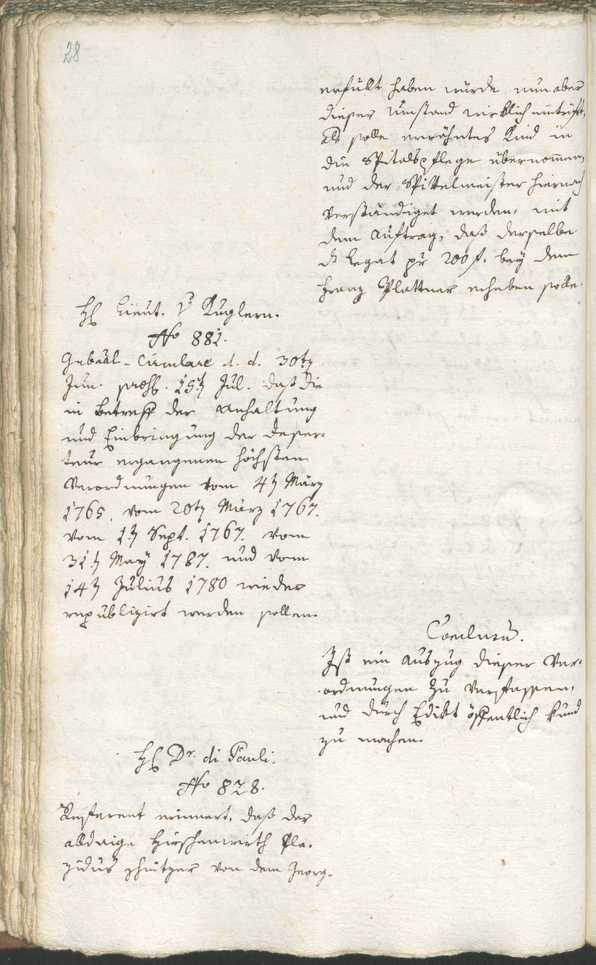 28
erfült haben würde, nun aber
dieser Umstand wirklich eintrifft,
als solle erwöhntes Kind in
die Spitalspflege übernommen
und der Spittelmeister hiernach
verständiget werden, mit
dem Auftrag, daß derselbe
das Legat pr 200 f. bey dem
Franz Plattner erheben solle.
H. Lieut. v. Kuglern.
No 881.
Gubäal-Circulare d. d. 30ten
Jun. 15ten Jul. daß die
in Betreff der Anhaltung
und Einbringung der Deser-
teur ergangenen höchsten
Verordnungen vom 4ten März
1765, vom 20ten März 1767.
vom 1ten Sept. 1767. vom
31ten May 1787. und vom
14ten Julius 1780 wieder
republizirt werden sollen.
Conclusum.
Ist ein Auszug dieser Ver-
ordnungen zu verfassen,
und durch Edikt öffentlich kund
zu machen.
H. Dr. di Pauli.
No 828.
Referent erinnert, daß der
alldasige Hirschenwirth Pla-
zidus Schnitzer von dem Georg-